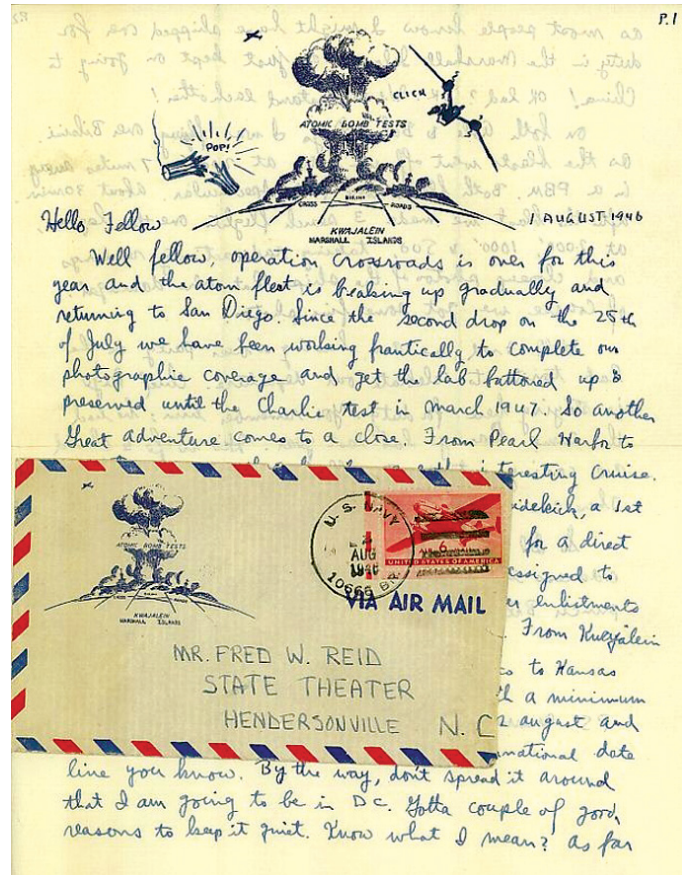 P.1
CLICK
ATOMIC BOMB TESTS
POP!
CROSS BIKINI ROADS
KWAJALEIN
MARSHALL ISLANDS
Hello Fellow
1 AUGUST 1946
Well fellow, operation Crossroads is over for this
year and the atom fleet is breaking up gradually and
returning to San Diego. Since the second drop on the 25th
of July we have been working frantically to complete our
photographic coverage and get the lab battoned up &
preserved until the Charlie test in March 1947. So another
Great adventure comes to a close. From Pearl Harbor to
interesting Cruise.
sidekick, a 1st
for a direct
assigned to
enlistments
From Kwajalein
to Kansas
a minimum
2 august and
national date
line you know. By the way, don't spread it around
that I am going to be in D.C. Gotta couple of good,
reasons to keep it quiet. Know what I mean? As far
ATOMIC BOMB TESTS
KWAJALEIN
MARSHALL ISLANDS
U. S. NAVY
AUG
1946
10666 BR.
6
UNITED STATES OF AMERICA
VIA AIR MAIL
MR. FRED W. REID
STATE THEATER
HENDERSONVILLE N. C